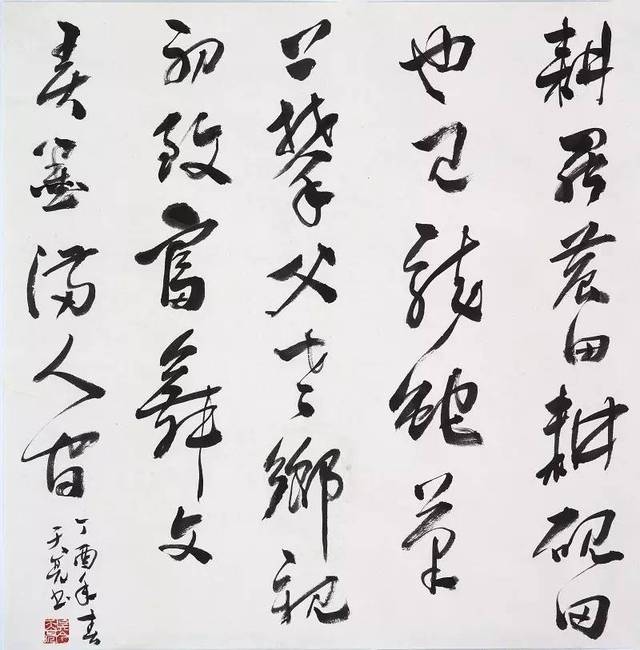 耕罢農田耕砚田
也见龍蛇笔
上攀父老鄉親
初致富舞文
弄墨满人间
丁酉年春
天亮书